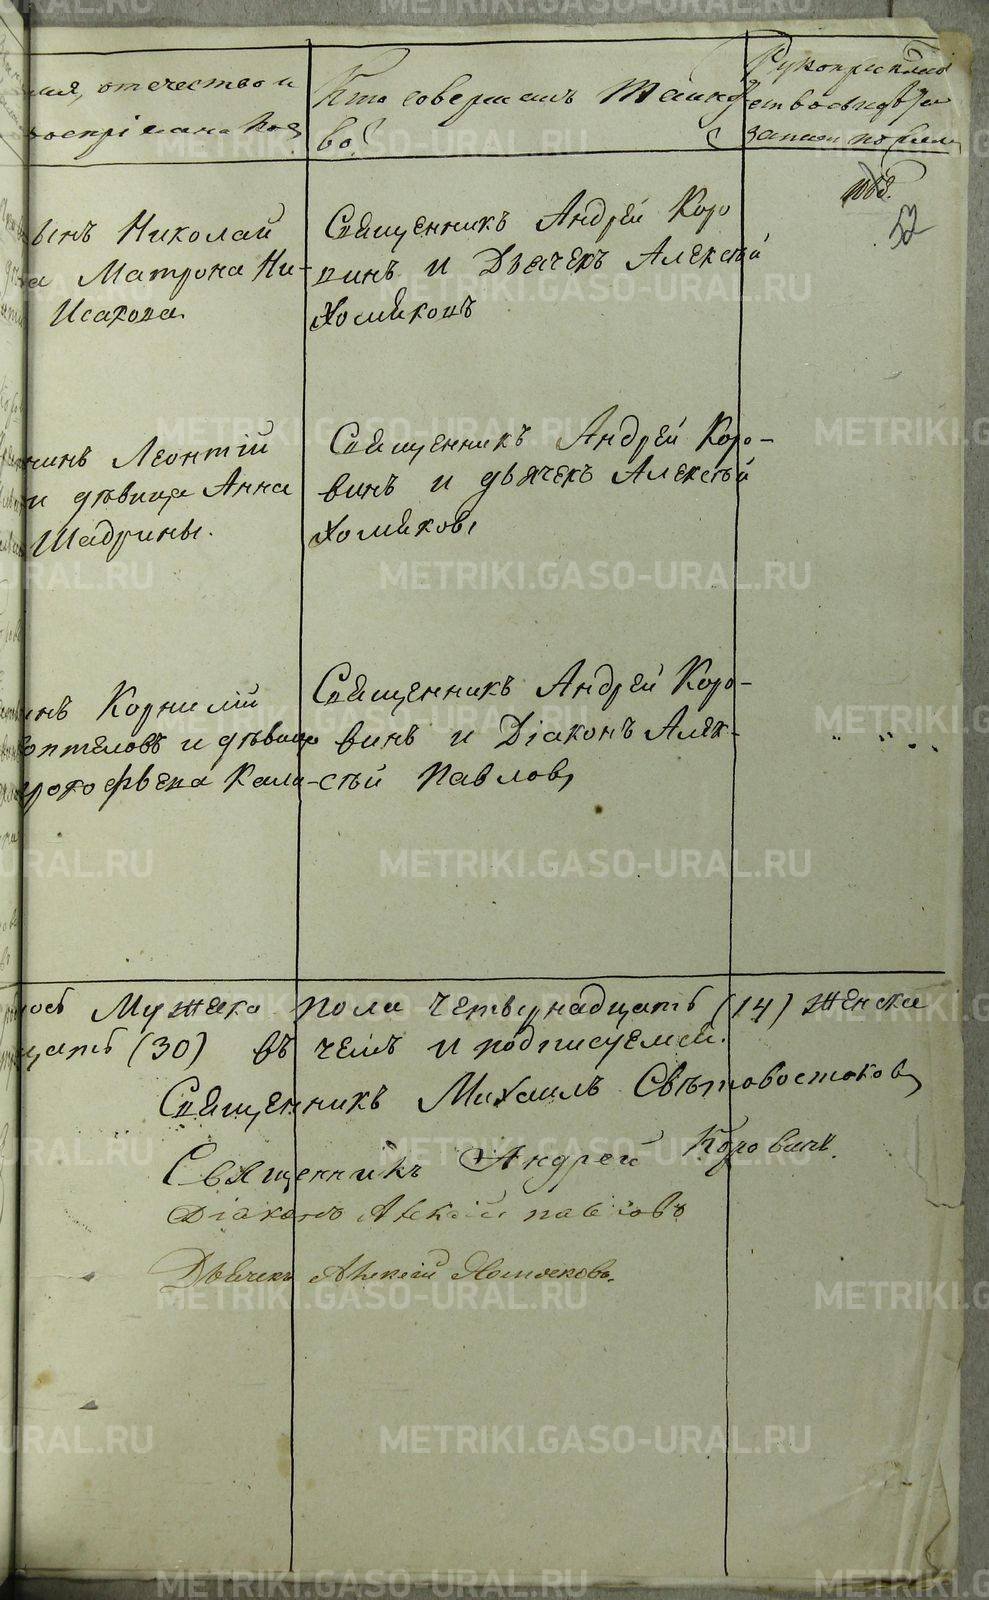 отчество и
воспріемниковъ
Кто совершалъ таинст
во?
Рукоприкладст
ство свидѣте
записи по жела
1063.
52
Николай
Матрона Ни-
Исакова
Священникъ Андрей Коро
винъ и Дьячекъ Алексѣй
Хомяковъ
Леонтій
и дѣвица Анна
Шадрины.
Священникъ Андрей Коро-
винъ и дьячекъ Алексѣй
Хомяковъ
Корнилій
и дѣвица
Кала-
Священникъ Андрей Коро-
винъ и Діаконъ Алек-
сѣй Павловъ
Мужеска пола четырнадцать (14) женска
(30) въ чемъ и подписуемся.
Священникъ Михаилъ Свѣтовостоковъ
Священникъ Андрей Коровинъ.
Діаконъ Алексѣй Павловъ
Дьячекъ Алексѣй Хомяковъ.
METRIKI.GASO-URAL.RU